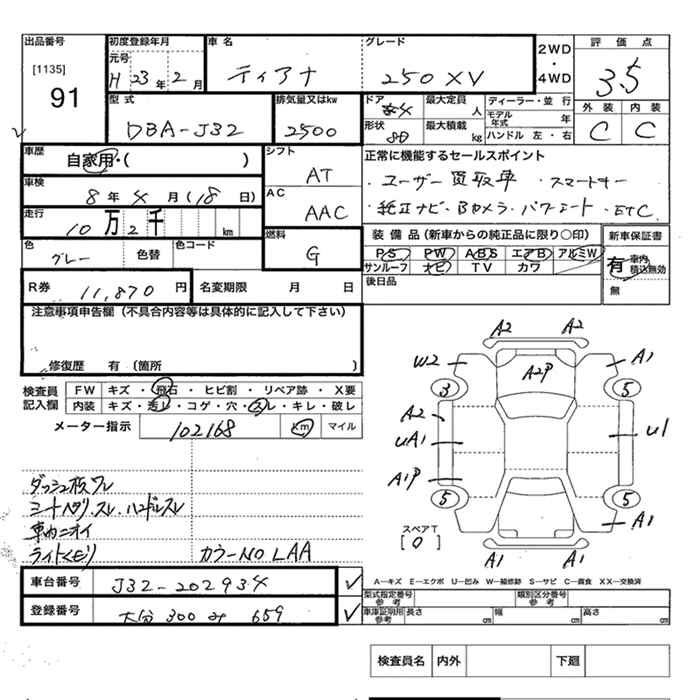 出品番号 初度登録年月 車名 グレード 2WD・4WD 評価点
[1135]
91
元号 H 23年 2月 ティアナ 250XV 3.5
型式 排気量又はkw ドア 最大定員 人 ディーラー・並行 外装 内装
DBA-J32 2500 4 モデル年式 年 C C
形状 最大積載 kg ハンドル 左・右
車歴 自家用・( ) シフト AT 正常に機能するセールスポイント
車検 8年 4月(18日) AC AAC ・ユーザー買取車 ・スマートキー
走行 10万2千 km ・純正ナビ・Bカメラ・パワーシート・ETC
色 グレー 色替 色コード 燃料 G 装備品(新車からの純正品に限り〇印) 新車保証書
PS PW ABS エアB アルミW 有 車内積込無効
サンルーフ ナビ TV カワ
R券 11,870円 名変期限 月 日 後日品 無
注意事項申告欄(不具合内容等は具体的に記入して下さい)
修復歴 有(箇所 )
検査員記入欄 FW キズ・飛石・ヒビ割・リペア跡・X要
内装 キズ・汚レ・コゲ・穴・スレ・キレ・破レ
メーター指示 102168 Km マイル
A2 A2
W2 A2P A1
3 5
A2
UA1 U1
A1P
5 5
A1
スペアT
[0]
A1 A1
ライトくもり カラーNO LAA
A―キズ E―エクボ U―凹み W―補修跡 S―サビ C―腐食 XX―交換済
車台番号 J32-202934
型式指定番号 参考 類別区分番号 参考
登録番号 大分 300 み 659
車庫証明用 参考 長さ cm 幅 cm 高さ cm
検査員名 内外 下廻